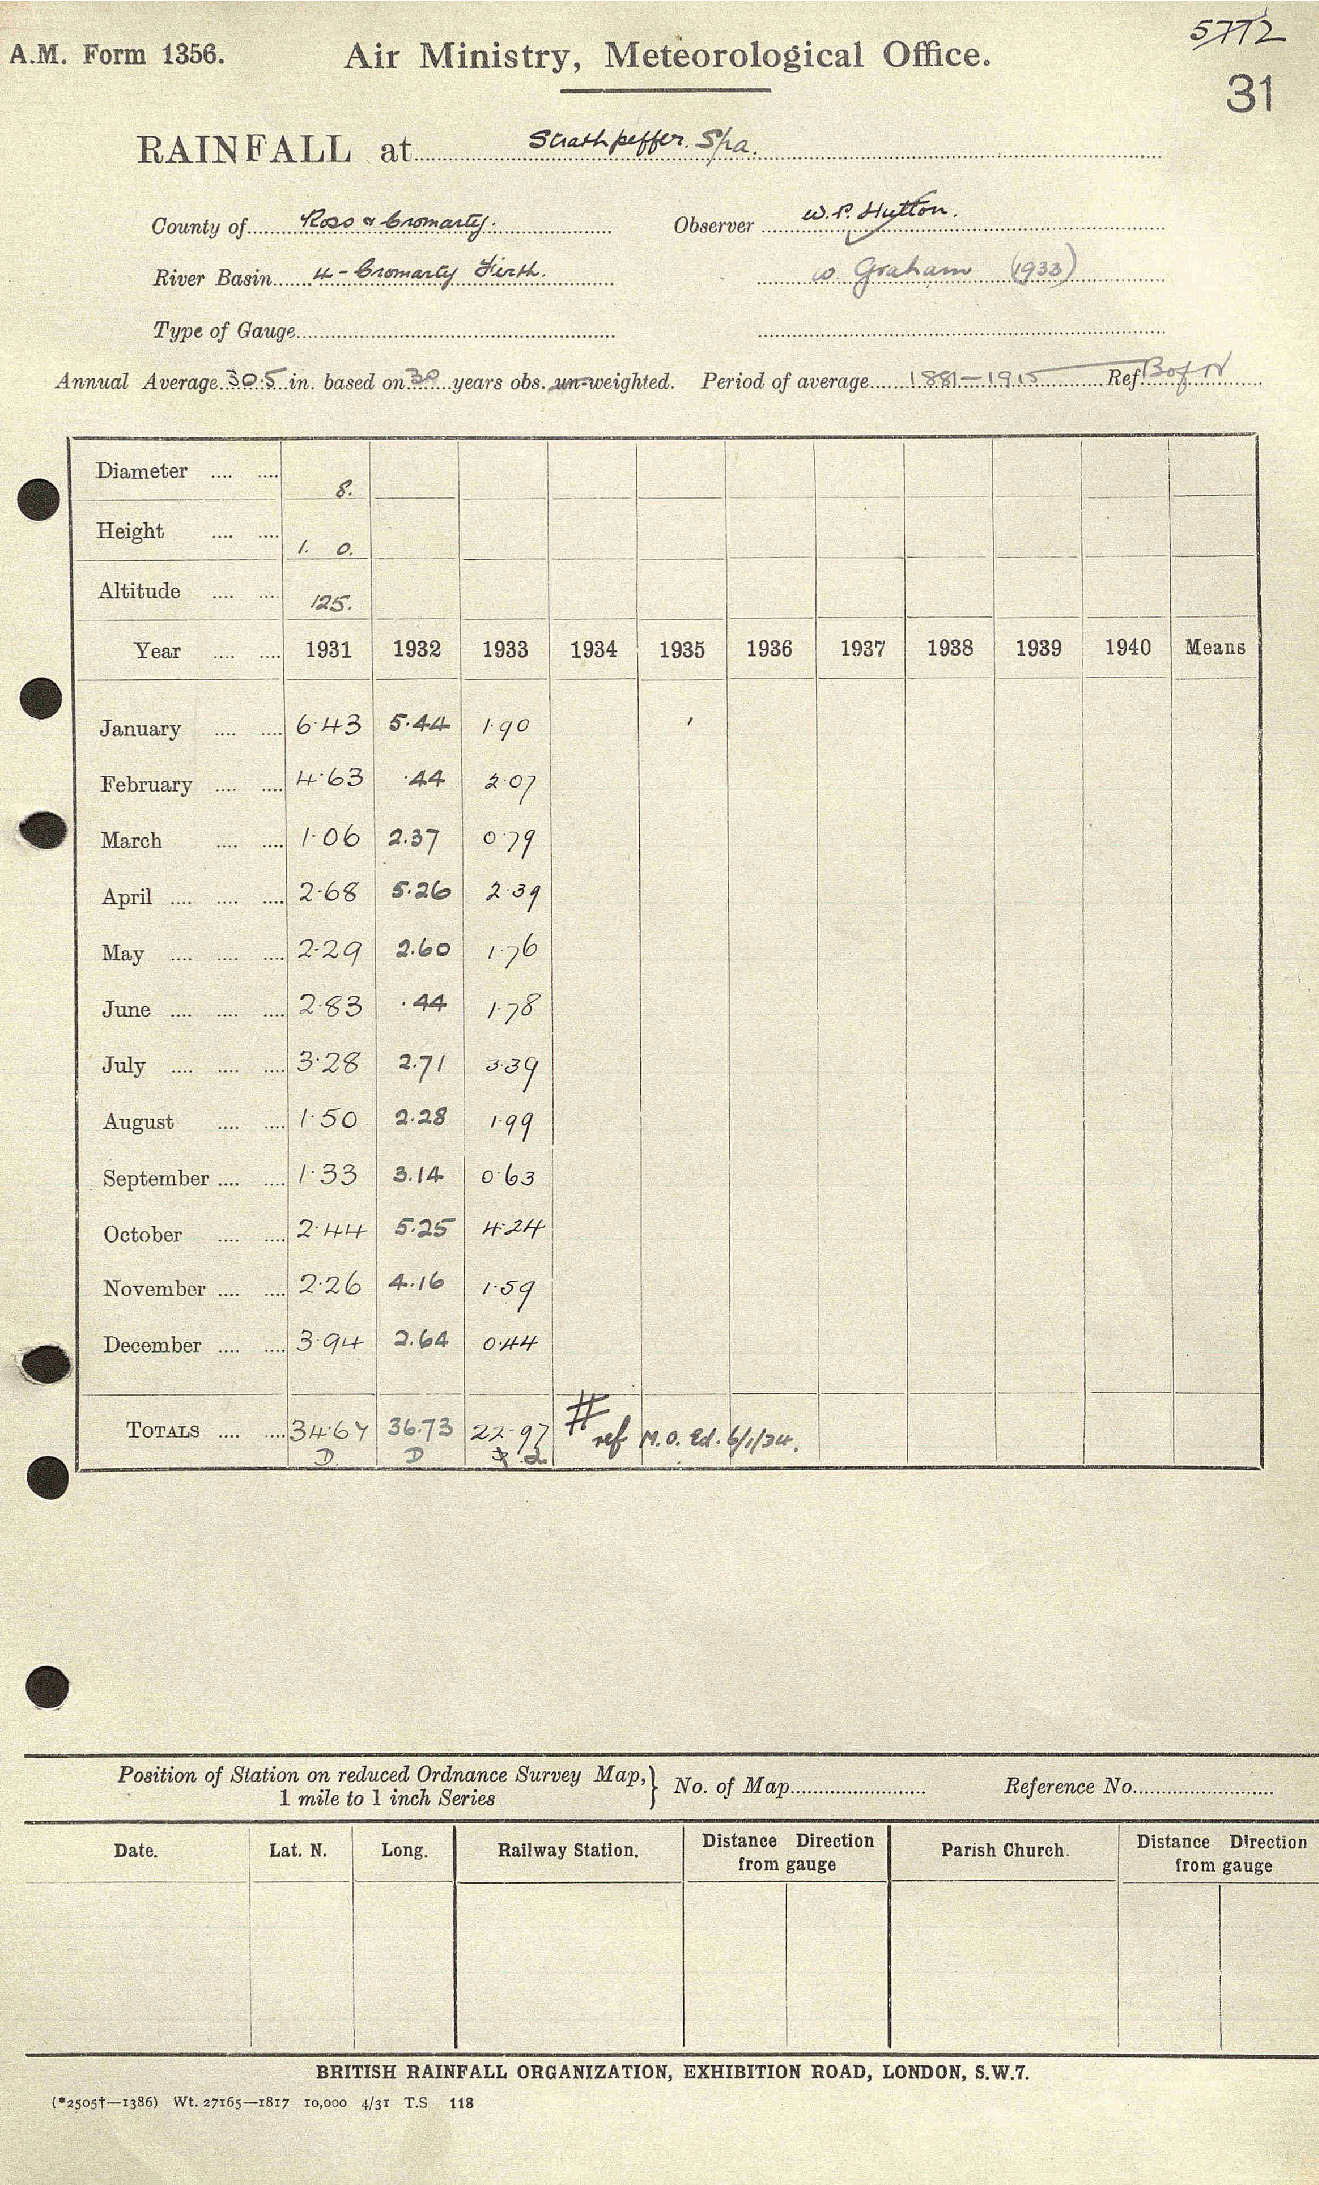 5772
A.M. Form 1356. Air Ministry, Meteorological Office.
31
RAINFALL at Strathpeffer. Spa.
County of Ross & Cromarty. Observer W. P. Hutton.
River Basin 4 - Cromarty Firth. W. Graham (1933)
Type of Gauge
Annual Average 30.5 in. based on years obs. un-weighted. Period of average 1881-1915 Ref. B of N
Diameter .... .... 8.
Height .... .... 1. 0.
Altitude .... .... 125.
Year .... .... 1931 1932 1933 1934 1935 1936 1937 1938 1939 1940 Means
January .... .... 6.43 5.44 1.90
February .... .... 4.63 .44 2.07
March .... .... 1.06 2.37 0.79
April .... .... .... 2.68 5.26 2.39
May .... .... .... 2.29 2.60 1.76
June .... .... .... 2.83 .44 1.78
July .... .... .... 3.28 2.71 3.39
August .... .... 1.50 2.28 1.99
September .... .... 1.33 3.14 0.63
October .... .... 2.44 5.25 4.24
November .... .... 2.26 4.16 1.59
December .... .... 3.94 2.64 0.44
TOTALS .... .... 34.67 36.73 22.97 # ref M.O. Ed. 6/1/34.
D D
Position of Station on reduced Ordnance Survey Map,} No. of Map Reference No.
1 mile to 1 inch Series
Date. Lat. N. Long. Railway Station. Distance Direction from gauge Parish Church. Distance Direction from gauge
BRITISH RAINFALL ORGANIZATION, EXHIBITION ROAD, LONDON, S.W.7.
(*2505†—1386) Wt. 27165—1817 10,000 4/31 T.S 118